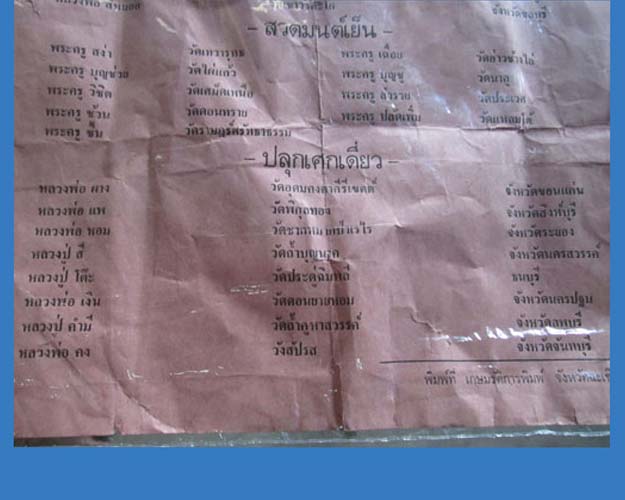 จังหวัดชลบุรี
- สวดมนต์เย็น -
พระครู สง่า วัดเทวารุทธ พระครู เฉื่อย วัดอ่าวช้างไล่
พระครู บุญช่วย วัดไผ่แก้ว พระครู บุญชู วัดนาอู่
พระครู วิชิต วัดเสม็ดเหนือ พระครู สำรวย วัดประเวศ
พระครู ช้วน วัดดอนทราย พระครู ปลัดเพิ่ม วัดแหลมโต้
พระครู ซ้ม วัดราษฎร์ศรัทธาธรรม
- ปลุกเศกเดี่ยว -
หลวงพ่อ ผาง วัดอุดมคงคาคีรีเขตต์ จังหวัดขอนแก่น
หลวงพ่อ แพ วัดพิกุลทอง จังหวัดสิงห์บุรี
หลวงพ่อ หอม วัดชากหมาก จังหวัดระยอง
หลวงปู่ สี วัดถ้ำบุญนาค จังหวัดนครสวรรค์
หลวงปู่ โต๊ะ วัดประดู่ฉิมพลี ธนบุรี
หลวงพ่อ เงิน วัดดอนยายหอม จังหวัดนครปฐม
หลวงปู่ คำมี วัดถ้ำคูหาสวรรค์ จังหวัดลพบุรี
หลวงพ่อ คง วังสัปรส จังหวัดจันทบุรี
พิมพ์ที่ เกษมรัติการพิมพ์